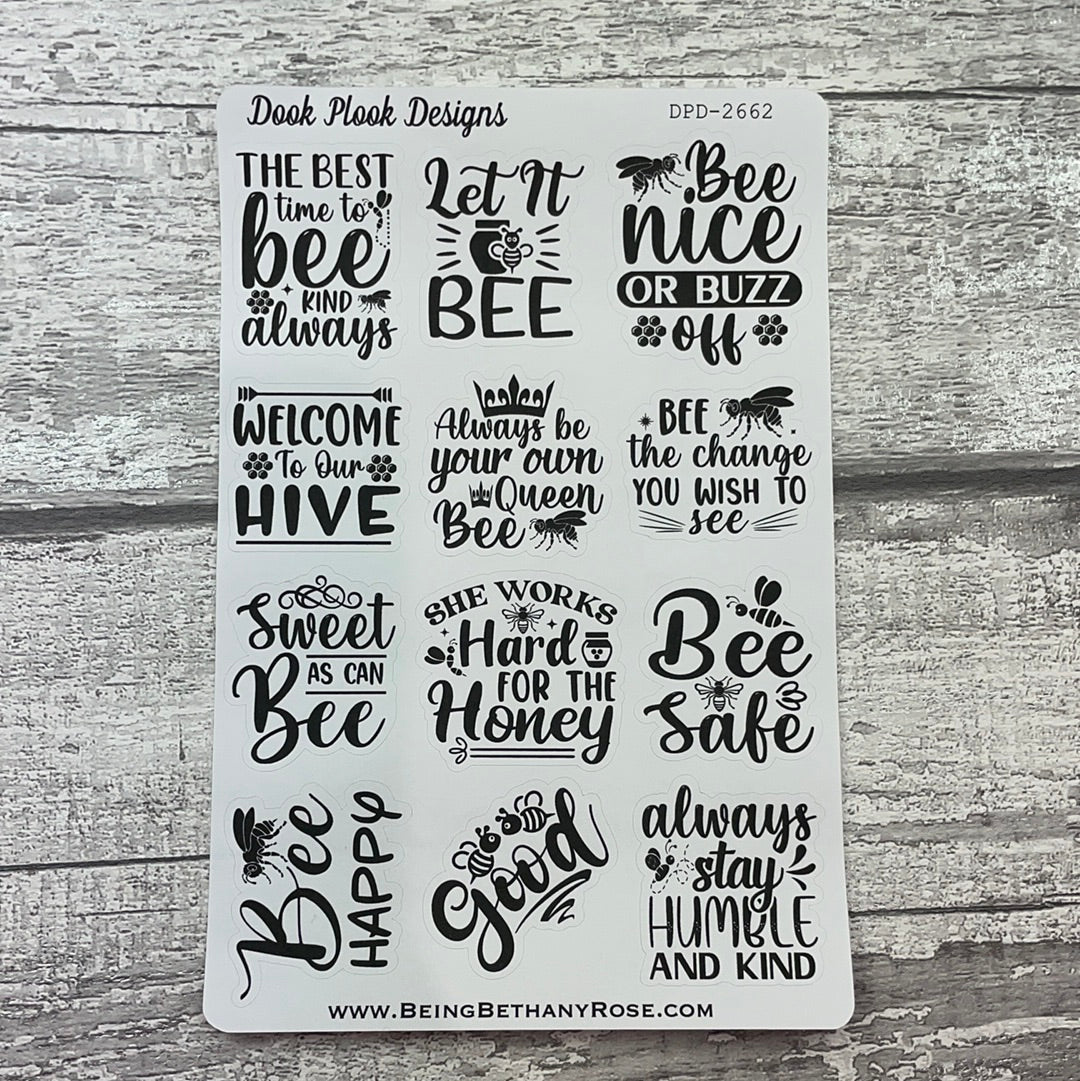 Dook Plook Designs
DPD-2662
THE BEST
time to
bee
KIND
always
Let It
BEE
Bee
nice
OR BUZZ
off
WELCOME
To Our
HIVE
Always be
your own
Queen
Bee
BEE
the change
YOU WISH TO
see
Sweet
AS CAN
Bee
SHE WORKS
Hard
FOR THE
Honey
Bee
Safe
Bee
HAPPY
Good
always
stay
HUMBLE
AND KIND
WWW.BEINGBETHANYROSE.COM